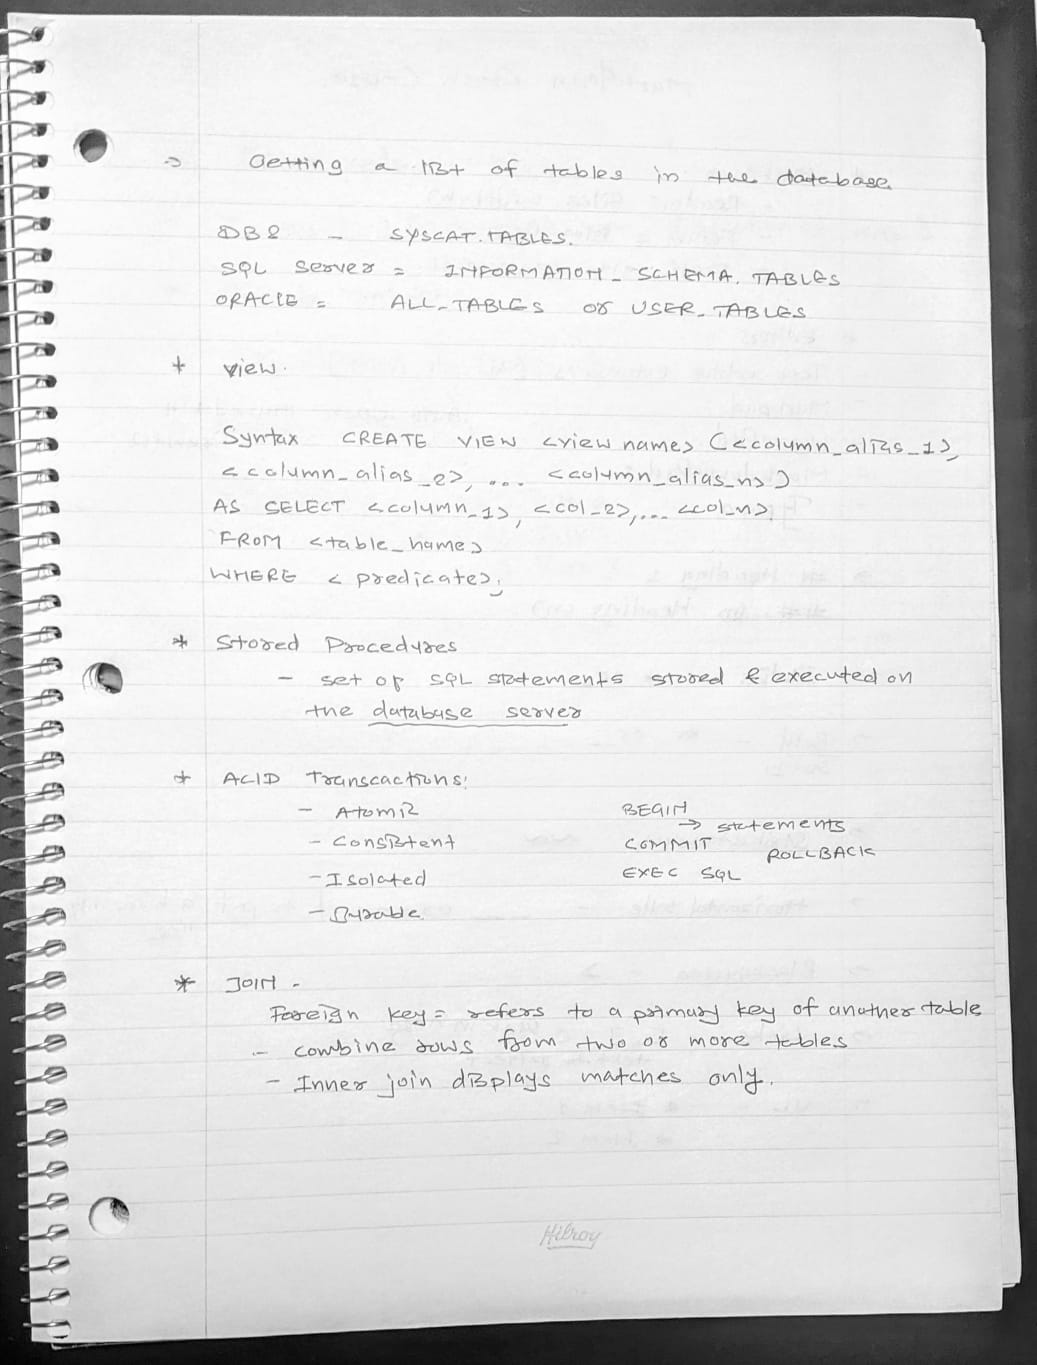 → Getting a list of tables in the database.
DB2 - SYSCAT.TABLES.
SQL Server = INFORMATION_SCHEMA.TABLES
ORACLE = ALL_TABLES or USER_TABLES
* View.
Syntax CREATE VIEW <view name> (<column_alias_1>,
<column_alias_2>, ... <column_alias_n>)
AS SELECT <column_1>, <col_2>,... <col_n>
FROM <table_name>
WHERE <predicate>;
* Stored Procedures
- set of SQL statements stored & executed on
the database server
* ACID Transcactions:
- Atomic BEGIN
→ statements
- Consistent COMMIT ROLLBACK
- Isolated EXEC SQL
- Durable
* JOIN -
Foreign key = refers to a primary key of another table
- combine rows from two or more tables
- Inner join displays matches only.
Hilroy